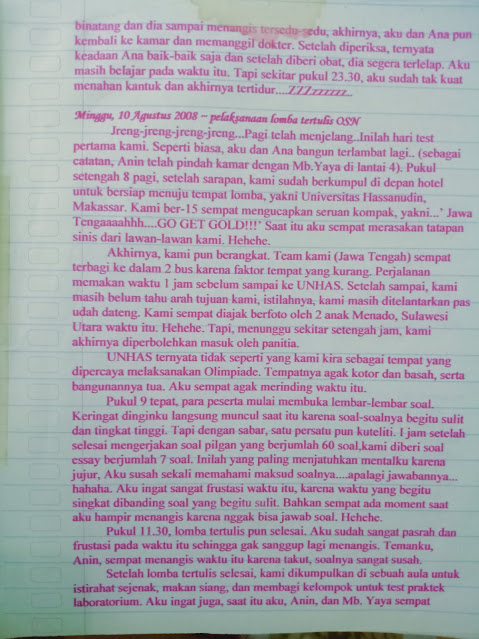 binatang dan dia sampai menangis tersedu-sedu, akhirnya, aku dan Ana pun
kembali ke kamar dan memanggil dokter. Setelah diperiksa, ternyata
keadaan Ana baik-baik saja dan setelah diberi obat, dia segera terlelap. Aku
masih belajar pada waktu itu. Tapi sekitar pukul 23.30, aku sudah tak kuat
menahan kantuk dan akhirnya tertidur....ZZZzzzzzz..
Minggu, 10 Agustus 2008 – pelaksanaan lomba tertulis OSN
Jreng-jreng-jreng-jreng...Pagi telah menjelang..Inilah hari test
pertama kami. Seperti biasa, aku dan Ana bangun terlambat lagi.. (sebagai
catatan, Anin telah pindah kamar dengan Mb.Yaya di lantai 4). Pukul
setengah 8 pagi, setelah sarapan, kami sudah berkumpul di depan hotel
untuk bersiap menuju tempat lomba, yakni Universitas Hassanudin,
Makassar. Kami ber-15 sempat mengucapkan seruan kompak, yakni...' Jawa
Tengaaaahhh....GO GET GOLD!!!' Saat itu aku sempat merasakan tatapan
sinis dari lawan-lawan kami. Hehehe.
Akhirnya, kami pun berangkat. Team kami (Jawa Tengah) sempat
terbagi ke dalam 2 bus karena faktor tempat yang kurang. Perjalanan
memakan waktu 1 jam sebelum sampai ke UNHAS. Setelah sampai, kami
masih belum tahu arah tujuan kami, istilahnya, kami masih ditelantarkan pas
udah dateng. Kami sempat diajak berfoto oleh 2 anak Menado, Sulawesi
Utara waktu itu. Hehehe. Tapi, menunggu sekitar setengah jam, kami
akhirnya diperbolehkan masuk oleh panitia.
UNHAS ternyata tidak seperti yang kami kira sebagai tempat yang
dipercaya melaksanakan Olimpiade. Tempatnya agak kotor dan basah, serta
bangunannya tua. Aku sempat agak merinding waktu itu.
Pukul 9 tepat, para peserta mulai membuka lembar-lembar soal.
Keringat dinginku langsung muncul saat itu karena soal-soalnya begitu sulit
dan tingkat tinggi. Tapi dengan sabar, satu persatu pun kuteliti. 1 jam setelah
selesai mengerjakan soal pilgan yang berjumlah 60 soal,kami diberi soal
essay berjumlah 7 soal. Inilah yang paling menjatuhkan mentalku karena
jujur, Aku susah sekali memahami maksud soalnya....apalagi jawabannya...
hahaha. Aku ingat sangat frustasi waktu itu, karena waktu yang begitu
singkat dibanding soal yang begitu sulit. Bahkan sempat ada moment saat
aku hampir menangis karena nggak bisa jawab soal. Hehehe.
Pukul 11.30, lomba tertulis pun selesai. Aku sudah sangat pasrah dan
frustasi pada waktu itu sehingga gak sanggup lagi menangis. Temanku,
Anin, sempat menangis waktu itu karena takut, soalnya sangat susah.
Setelah lomba tertulis selesai, kami dikumpulkan di sebuah aula untuk
istirahat sejenak, makan siang, dan membagi kelompok untuk test praktek
laboratorium. Aku ingat juga, saat itu aku, Anin, dan Mb. Yaya sempat